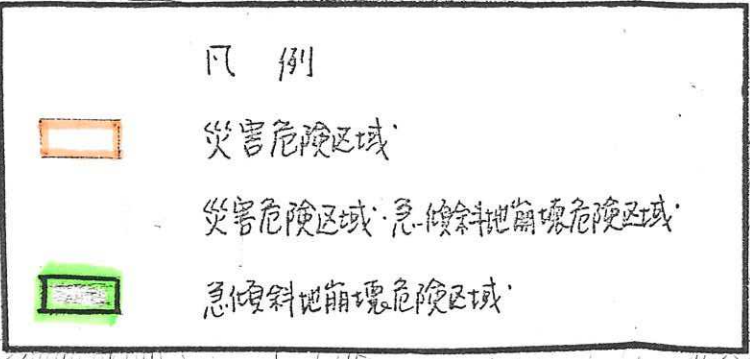 凡 例
災害危険区域
災害危険区域・急傾斜地崩壊危険区域
急傾斜地崩壊危険区域